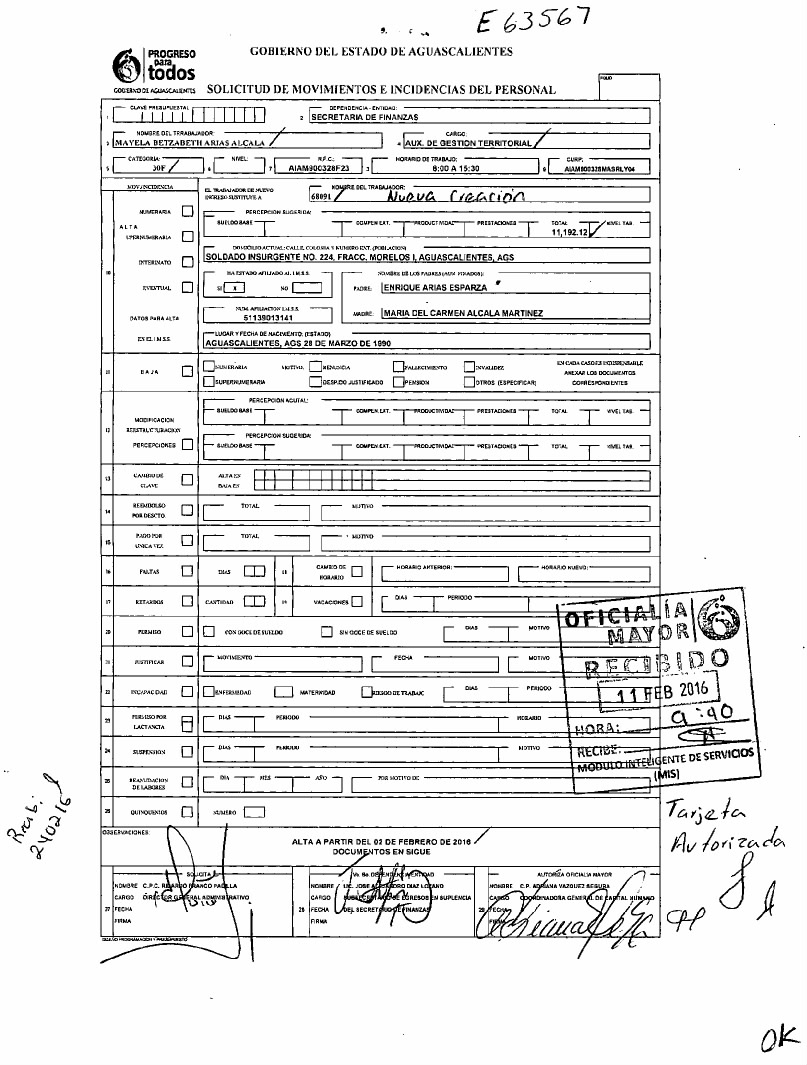 E63567
PROGRESO para todos
GOBIERNO DE AGUASCALIENTES
GOBIERNO DEL ESTADO DE AGUASCALIENTES
SOLICITUD DE MOVIMIENTOS E INCIDENCIAS DEL PERSONAL
FOLIO
1 CLAVE PRESUPUESTAL
2 DEPENDENCIA - ENTIDAD:
SECRETARIA DE FINANZAS
NOMBRE DEL TRRABAJADOR: CARGO:
3 MAYELA BETZABETH ARIAS ALCALA 4 AUX. DE GESTION TERRITORIAL
CATEGORIA: NIVEL: R.F.C.: HORARIO DE TRABAJO: CURP:
5 30F 6 7 AIAM900328F23 3 8:00 A 15:30 9 AIAM900328MASRLY04
MOV./INCIDENCIA
EL TRABAJADOR DE NUEVO INGRESO SUSTITUYE A
NOMBRE DEL TRABAJADOR:
68091 Nueva Creación
NUMERARIA
ALTA
PERCEPCION SUGERIDA:
SUELDO BASE COMPEN.EXT. PRODUCTIVIDAD PRESTACIONES TOTAL NIVEL TAB.
11,192.12
UPERNUMERARIA
DOMICILIO ACTUAL: CALLE, COLONIA Y NUMERO ENT. (POBLACION)
INTERINATO
SOLDADO INSURGENTE NO. 224, FRACC. MORELOS I, AGUASCALIENTES, AGS
10
HA ESTADO AFILIADO AL I.M.S.S. NOMBRE DE LOS PADRES (AUN FINADOS):
EVENTUAL
SI X NO PADRE: ENRIQUE ARIAS ESPARZA
NUM. AFILIACION I.M.S.S.
DATOS PARA ALTA 51139013141 MADRE: MARIA DEL CARMEN ALCALA MARTINEZ
LUGAR Y FECHA DE NACIMIENTO: (ESTADO)
EN EL I.M.S.S. AGUASCALIENTES, AGS 28 DE MARZO DE 1990
11 BAJA
NUMERARIA MOTIVO: RENUNCIA FALLECIMIENTO INVALIDEZ
SUPERNUMERARIA DESPIDO JUSTIFICADO PENSION OTROS (ESPECIFICAR)
EN CADA CASO ES INDISPENSABLE ANEXAR LOS DOCUMENTOS CORRESPONDIENTES
12 MODIFICACION REESTRUCTURACION PERCEPCIONES
PERCEPCION ACUTAL:
SUELDO BASE COMPEN.EXT. PRODUCTIVIDAD PRESTACIONES TOTAL NIVEL TAB.
PERCEPCION SUGERIDA:
SUELDO BASE COMPEN.EXT. PRODUCTIVIDAD PRESTACIONES TOTAL NIVEL TAB.
13 CAMBIO DE CLAVE ALTA EN
BAJA EN
14 REEMBOLSO POR DESCTO. TOTAL MOTIVO
15 PAGO POR UNICA VEZ TOTAL MOTIVO
16 FALTAS DIAS 18 CAMBIO DE HORARIO HORARIO ANTERIOR: HORARIO NUEVO:
17 RETARDOS CANTIDAD 19 VACACIONES DIAS PERIODO
20 PERMISO CON GOCE DE SUELDO SIN GOCE DE SUELDO DIAS MOTIVO
21 JUSTIFICAR MOVIMIENTO FECHA MOTIVO
22 INCAPACIDAD ENFERMEDAD MATERNIDAD RIESGO DE TRABAJO DIAS PERIODO
23 PERMISO POR LACTANCIA DIAS PERIODO HORARIO
24 SUSPENSION DIAS PERIODO MOTIVO
25 REANUDACION DE LABORES DIA MES AÑO POR MOTIVO DE
26 QUINQUENIOS NUMERO
OFICIALÍA MAYOR
RECIBIDO
11 FEB 2016
HORA: 9:40
RECIBE:
MODULO INTELIGENTE DE SERVICIOS
(MIS)
Recibí
240216
Tarjeta
Autorizada
OBSERVACIONES:
ALTA A PARTIR DEL 02 DE FEBRERO DE 2016
DOCUMENTOS EN SIGUE
SOLICITA
NOMBRE C.P.C. RICARDO FRANCO PADILLA
CARGO DIRECTOR GENERAL ADMINISTRATIVO
27 FECHA
FIRMA
Vo. Bo. DEPENDENCIA/ENTIDAD
NOMBRE LIC. JOSE ALEJANDRO DIAZ LOZANO
CARGO SUBSECRETARIO DE EGRESOS EN SUPLENCIA
28 FECHA DEL SECRETARIO DE FINANZAS
FIRMA
AUTORIZA OFICIALIA MAYOR
NOMBRE C.P. ADRIANA VAZQUEZ SEGURA
CARGO COORDINADORA GENERAL DE CAPITAL HUMANO
29 FECHA
DISEÑO PROGRAMACION Y PRESUPUESTO
OK